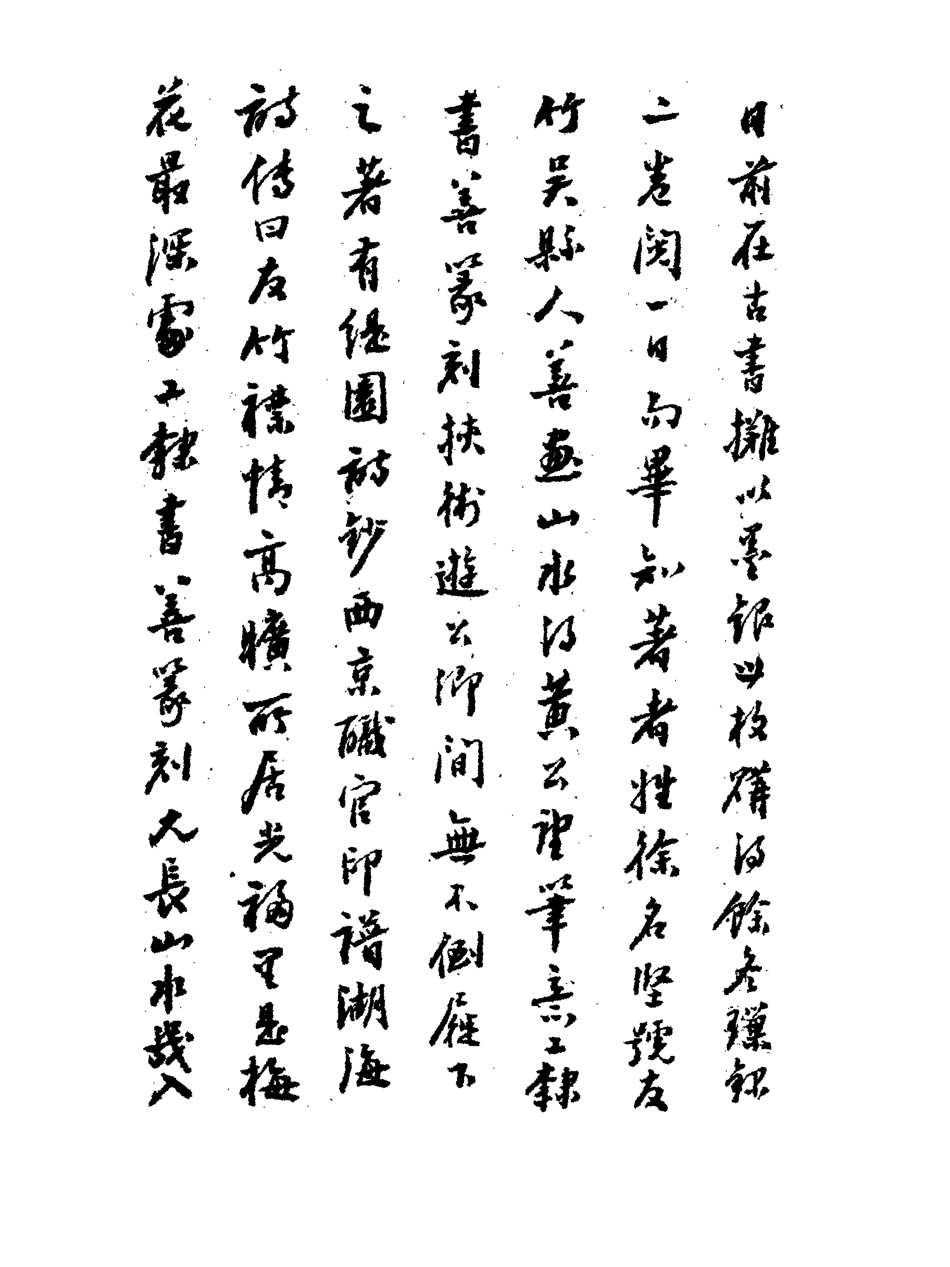 日前在古書攤以墨銀廿枚購得餘冬璅録
二卷閱一日而畢知著者姓徐名堅號友
竹吳縣人善畫山水得黃公望筆意工隸
書善篆刻挾術遊公卿間無不倒屣下
之著有緹園詩鈔西京職官印譜湖海
詩傳曰友竹襟情高曠所居光福里是梅
花最深處工隸書善篆刻尤長山水幾入